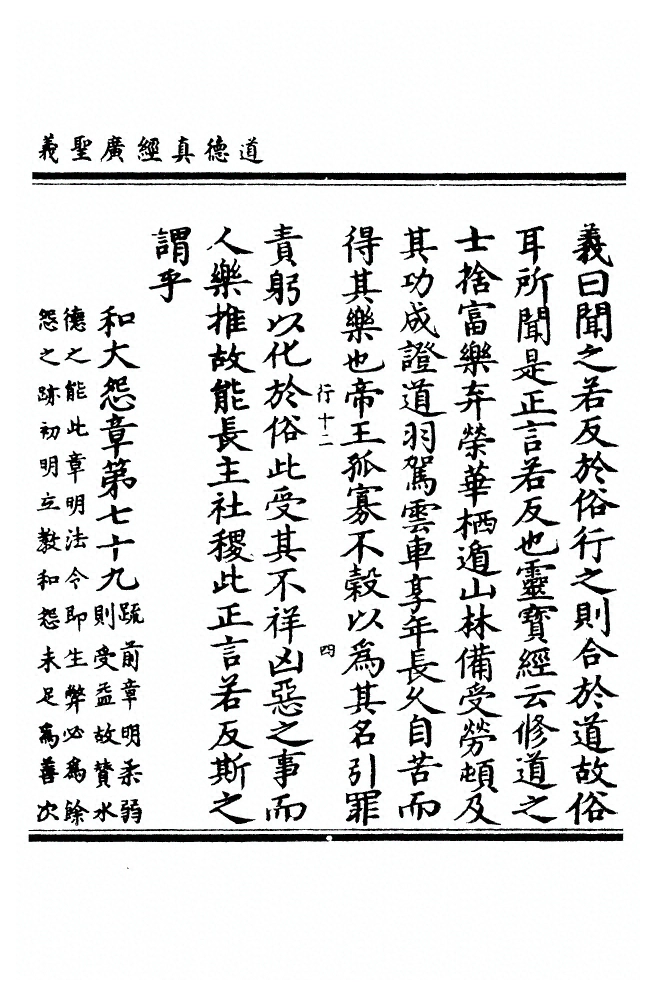 道德真經廣聖義
義曰聞之若反於俗行之則合於道故俗
耳所聞是正言若反也靈寶經云修道之
士捨富樂弃榮華栖遁山林備受勞頓及
其功成證道羽駕雲車享年長久自苦而
得其樂也帝王孤寡不穀以為其名引罪
行十二 四
責躬以化於俗此受其不祥凶惡之事而
人樂推故能長主社稷此正言若反斯之
謂乎
和大怨章第七十九
疏前章明柔弱
則受益故賛水
德之能此章明法令即生弊必為餘
怨之跡初明立教和怨未足為善次